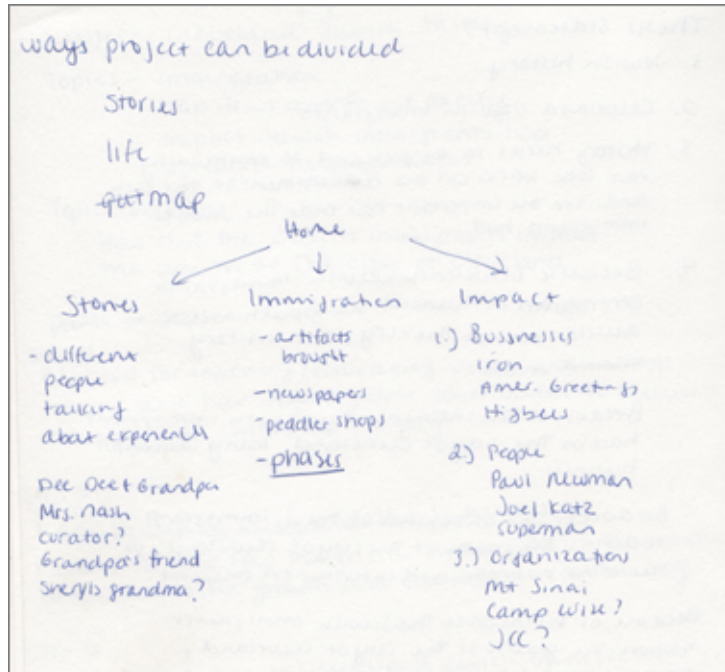 ways project can be divided
Stories
life
Home
Stories
- different
people
talking
about experiences
Dee Dee & Grandpa
Mrs. Nash
curator?
Grandpa's friend
Sheryls grandma?
Immigration
- artifacts
brought
- newspapers
- peddler shops
- phases
Impact
1.) Bussnesses
Iron
Amer. Greetings
Higbees
2.) People
Paul Newman
Joel Katz
Superman
3.) Organization
Mt Sinai
Camp Wise?
JCC?